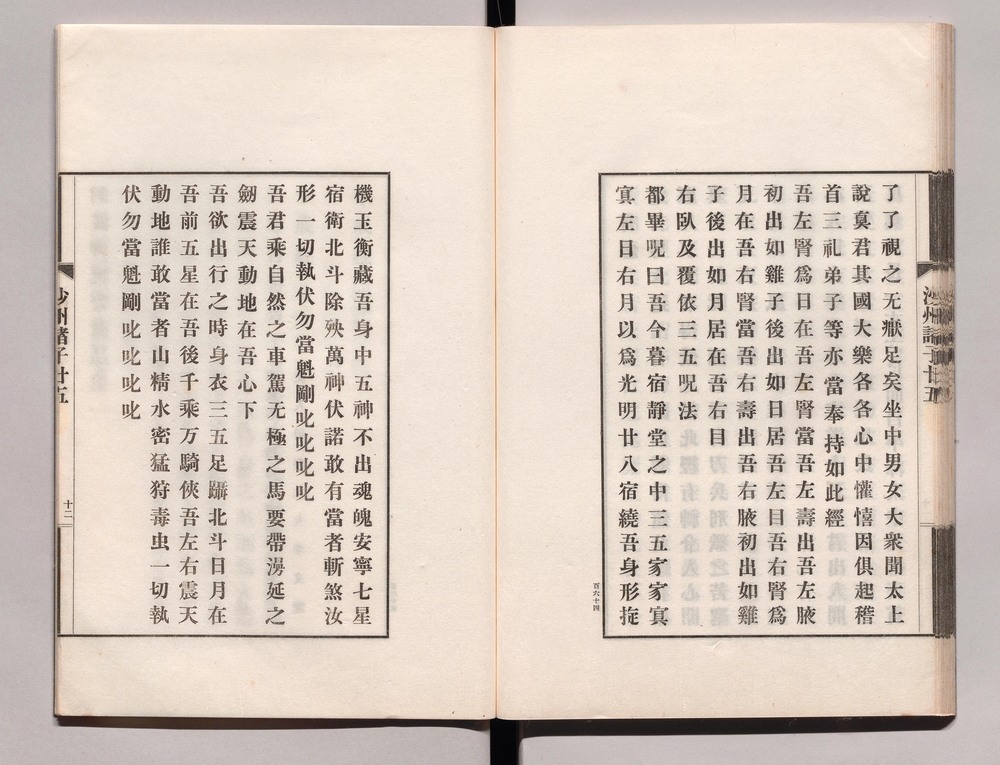 了了視之无猒足矣坐中男女大衆聞太上
說真君其國大樂各各心中懽憘因俱起稽
首三礼弟子等亦當奉持如此經
吾左腎爲日在吾左腎當吾左壽出吾左腋
初出如雞子後出如日居吾左目吾右腎爲
月在吾右腎當吾右壽出吾右腋初出如雞
子後出如月居在吾右目
右臥及覆依三五呪法
都畢呪曰吾今暮宿靜堂之中三五家家寘
寘左日右月以爲光明廿八宿繞吾身形掟
百六十四
機玉衡藏吾身中五神不出魂魄安寧七星
宿衛北斗除殃萬神伏諾敢有當者斬煞汝
形一切執伏勿當魁剛叱叱叱叱
吾君乘自然之車駕无極之馬要帶湯延之
劒震天動地在吾心下
吾欲出行之時身衣三五足躡北斗日月在
吾前五星在吾後千乘万騎俠吾左右震天
動地誰敢當者山精水密猛狩毒虫一切執
伏勿當魁剛叱叱叱叱
沙州諸子廿五
十二